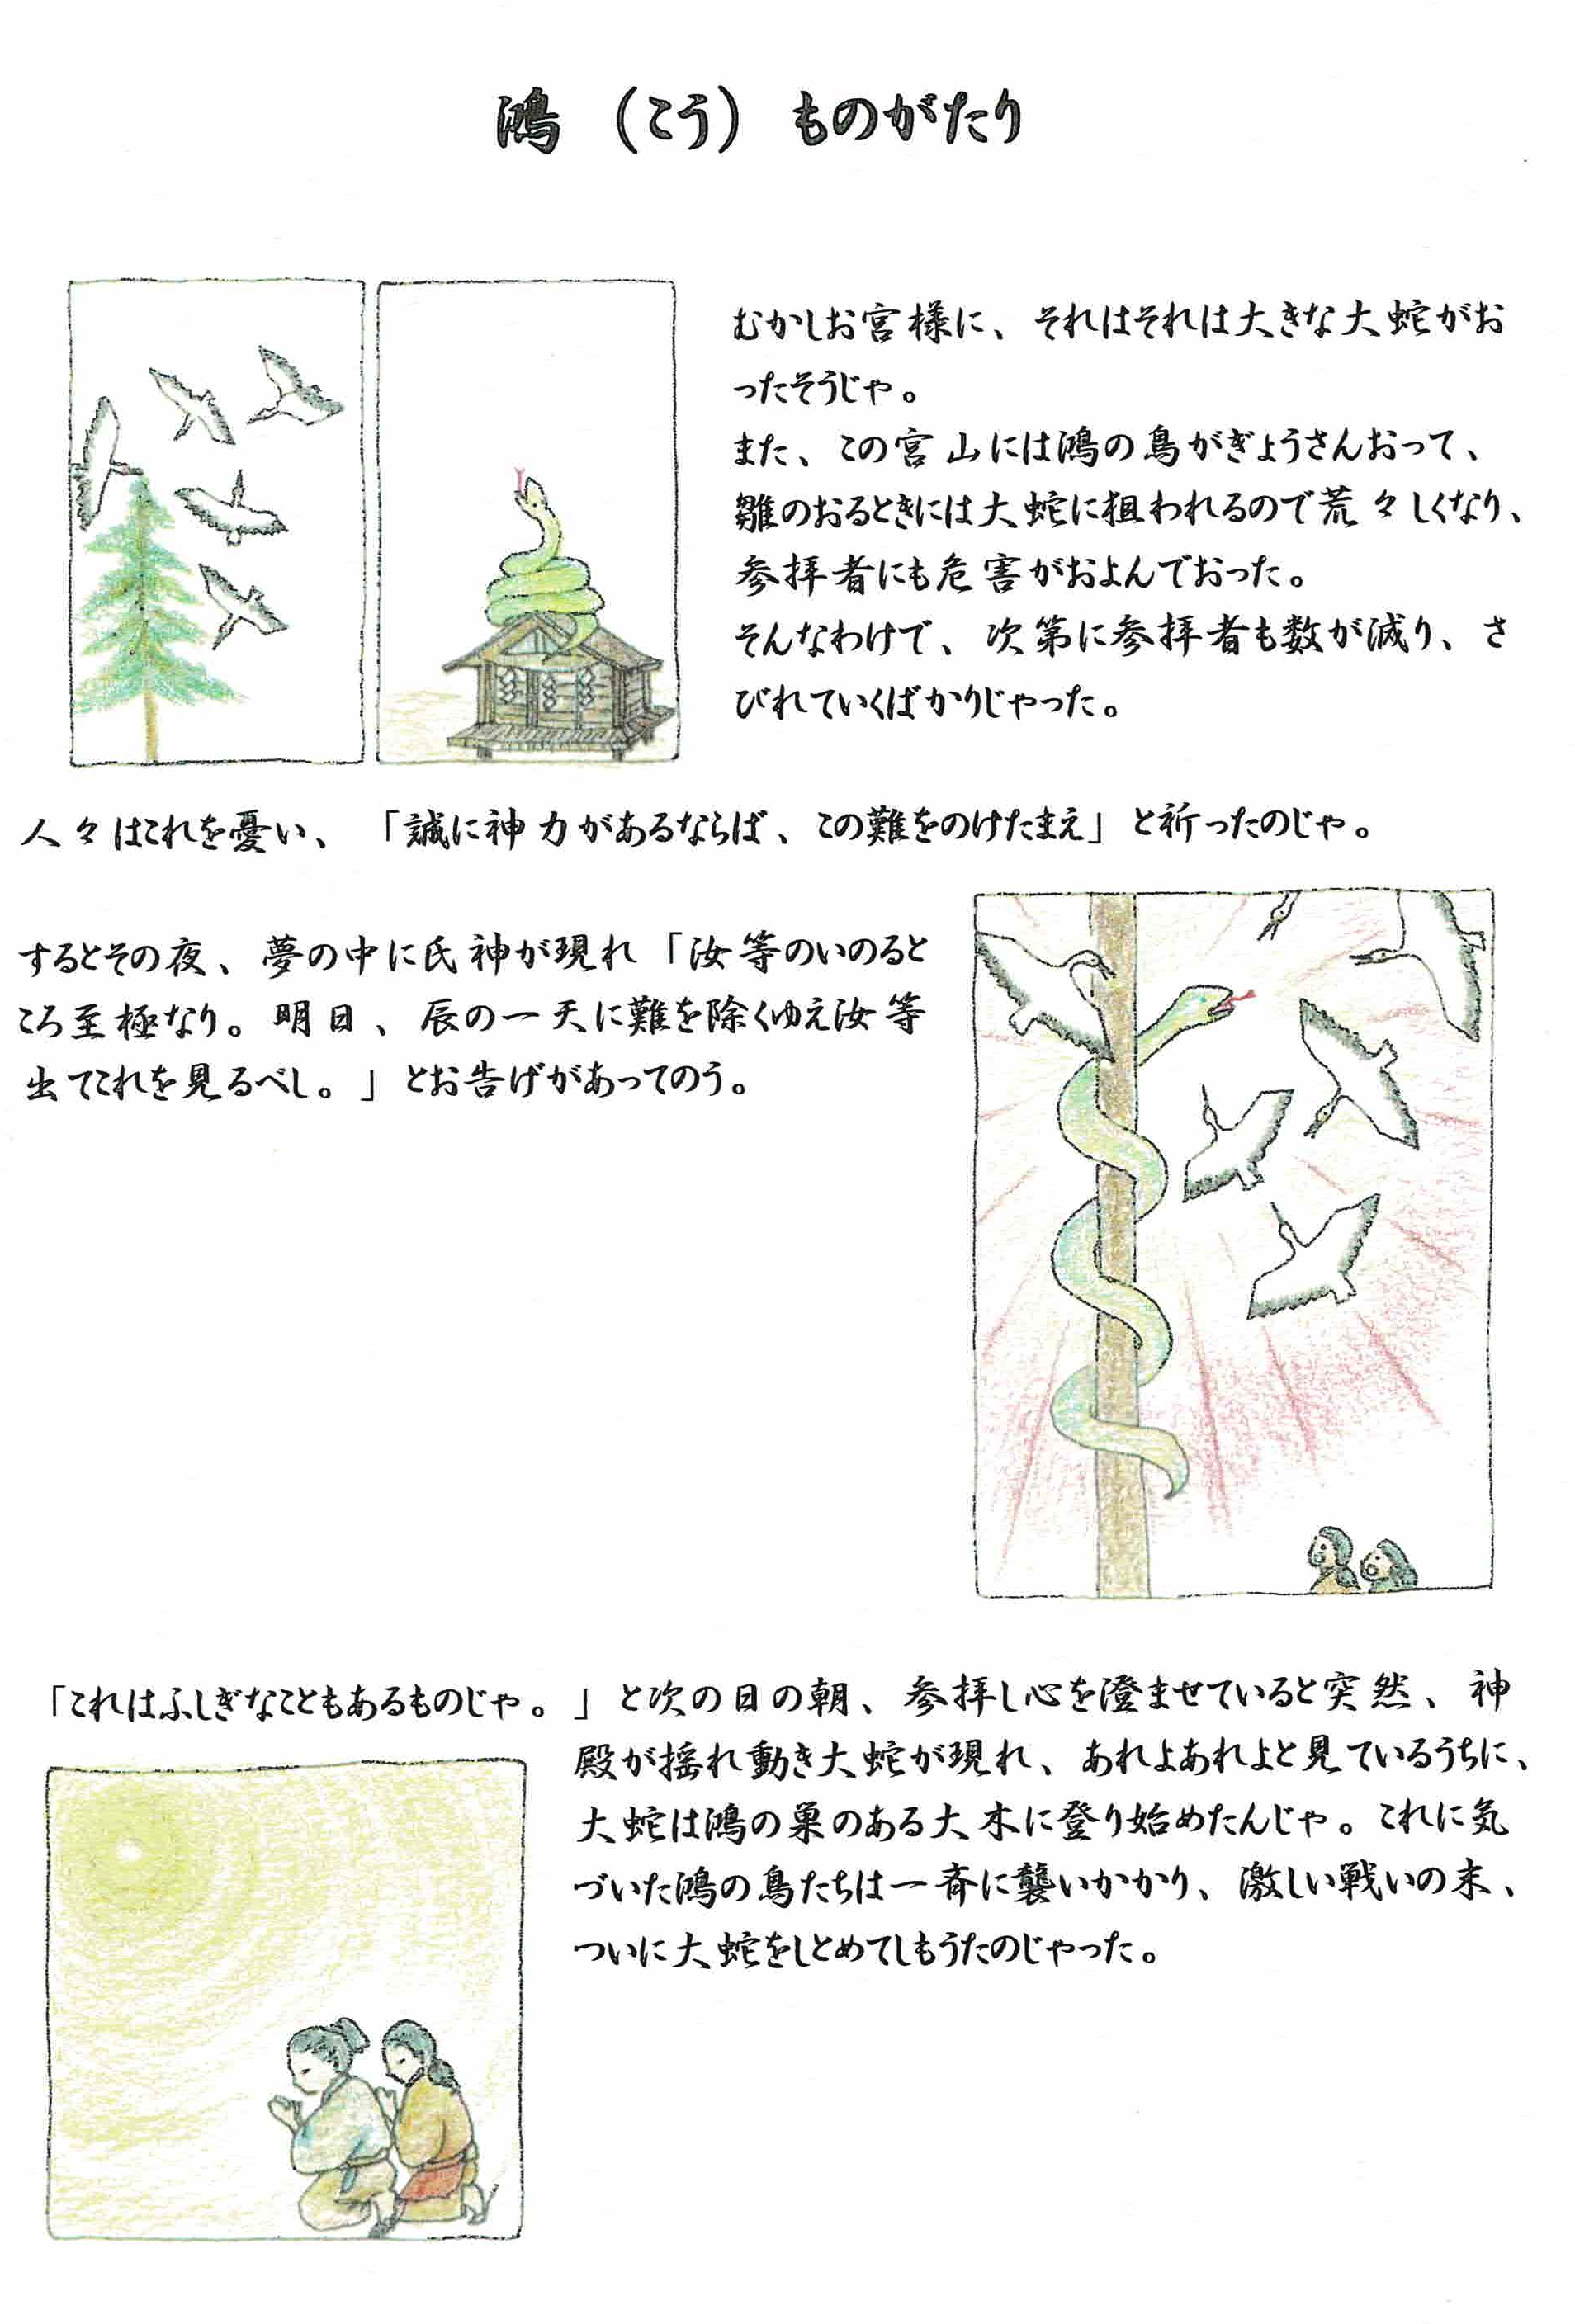 鴻（こう）ものがたり
むかしお宮様に、それはそれは大きな大蛇がお
ったそうじゃ。
また、この宮山には鴻の鳥がぎょうさんおって、
雛のおるときには大蛇に狙われるので荒々しくなり、
参拝者にも危害がおよんでおった。
そんなわけで、次第に参拝者も数が減り、さ
びれていくばかりじゃった。
人々はこれを憂い、「誠に神力があるならば、この難をのけたまえ」と祈ったのじゃ。
するとその夜、夢の中に氏神が現れ「汝等のいのると
ころ至極なり。明日、辰の一天に難を除くゆえ汝等
出てこれを見るべし。」とお告げがあってのう。
「これはふしぎなこともあるものじゃ。」と次の日の朝、参拝し心を澄ませていると突然、神
殿が揺れ動き大蛇が現れ、あれよあれよと見ているうちに、
大蛇は鴻の巣のある大木に登り始めたんじゃ。これに気
づいた鴻の鳥たちは一斉に襲いかかり、激しい戦いの末、
ついに大蛇をしとめてしもうたのじゃった。